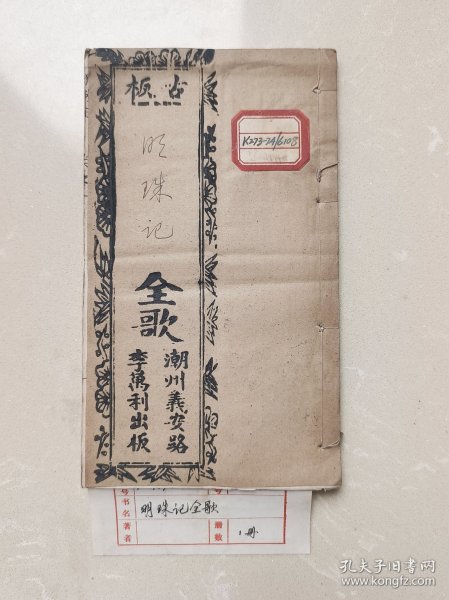 古板
明珠记
全歌
潮州義安路
李萬利出板
K273-74/6108
号
书名
明珠记全歌
著者
册数
1册
孔夫子旧书网
www.kongfz.com